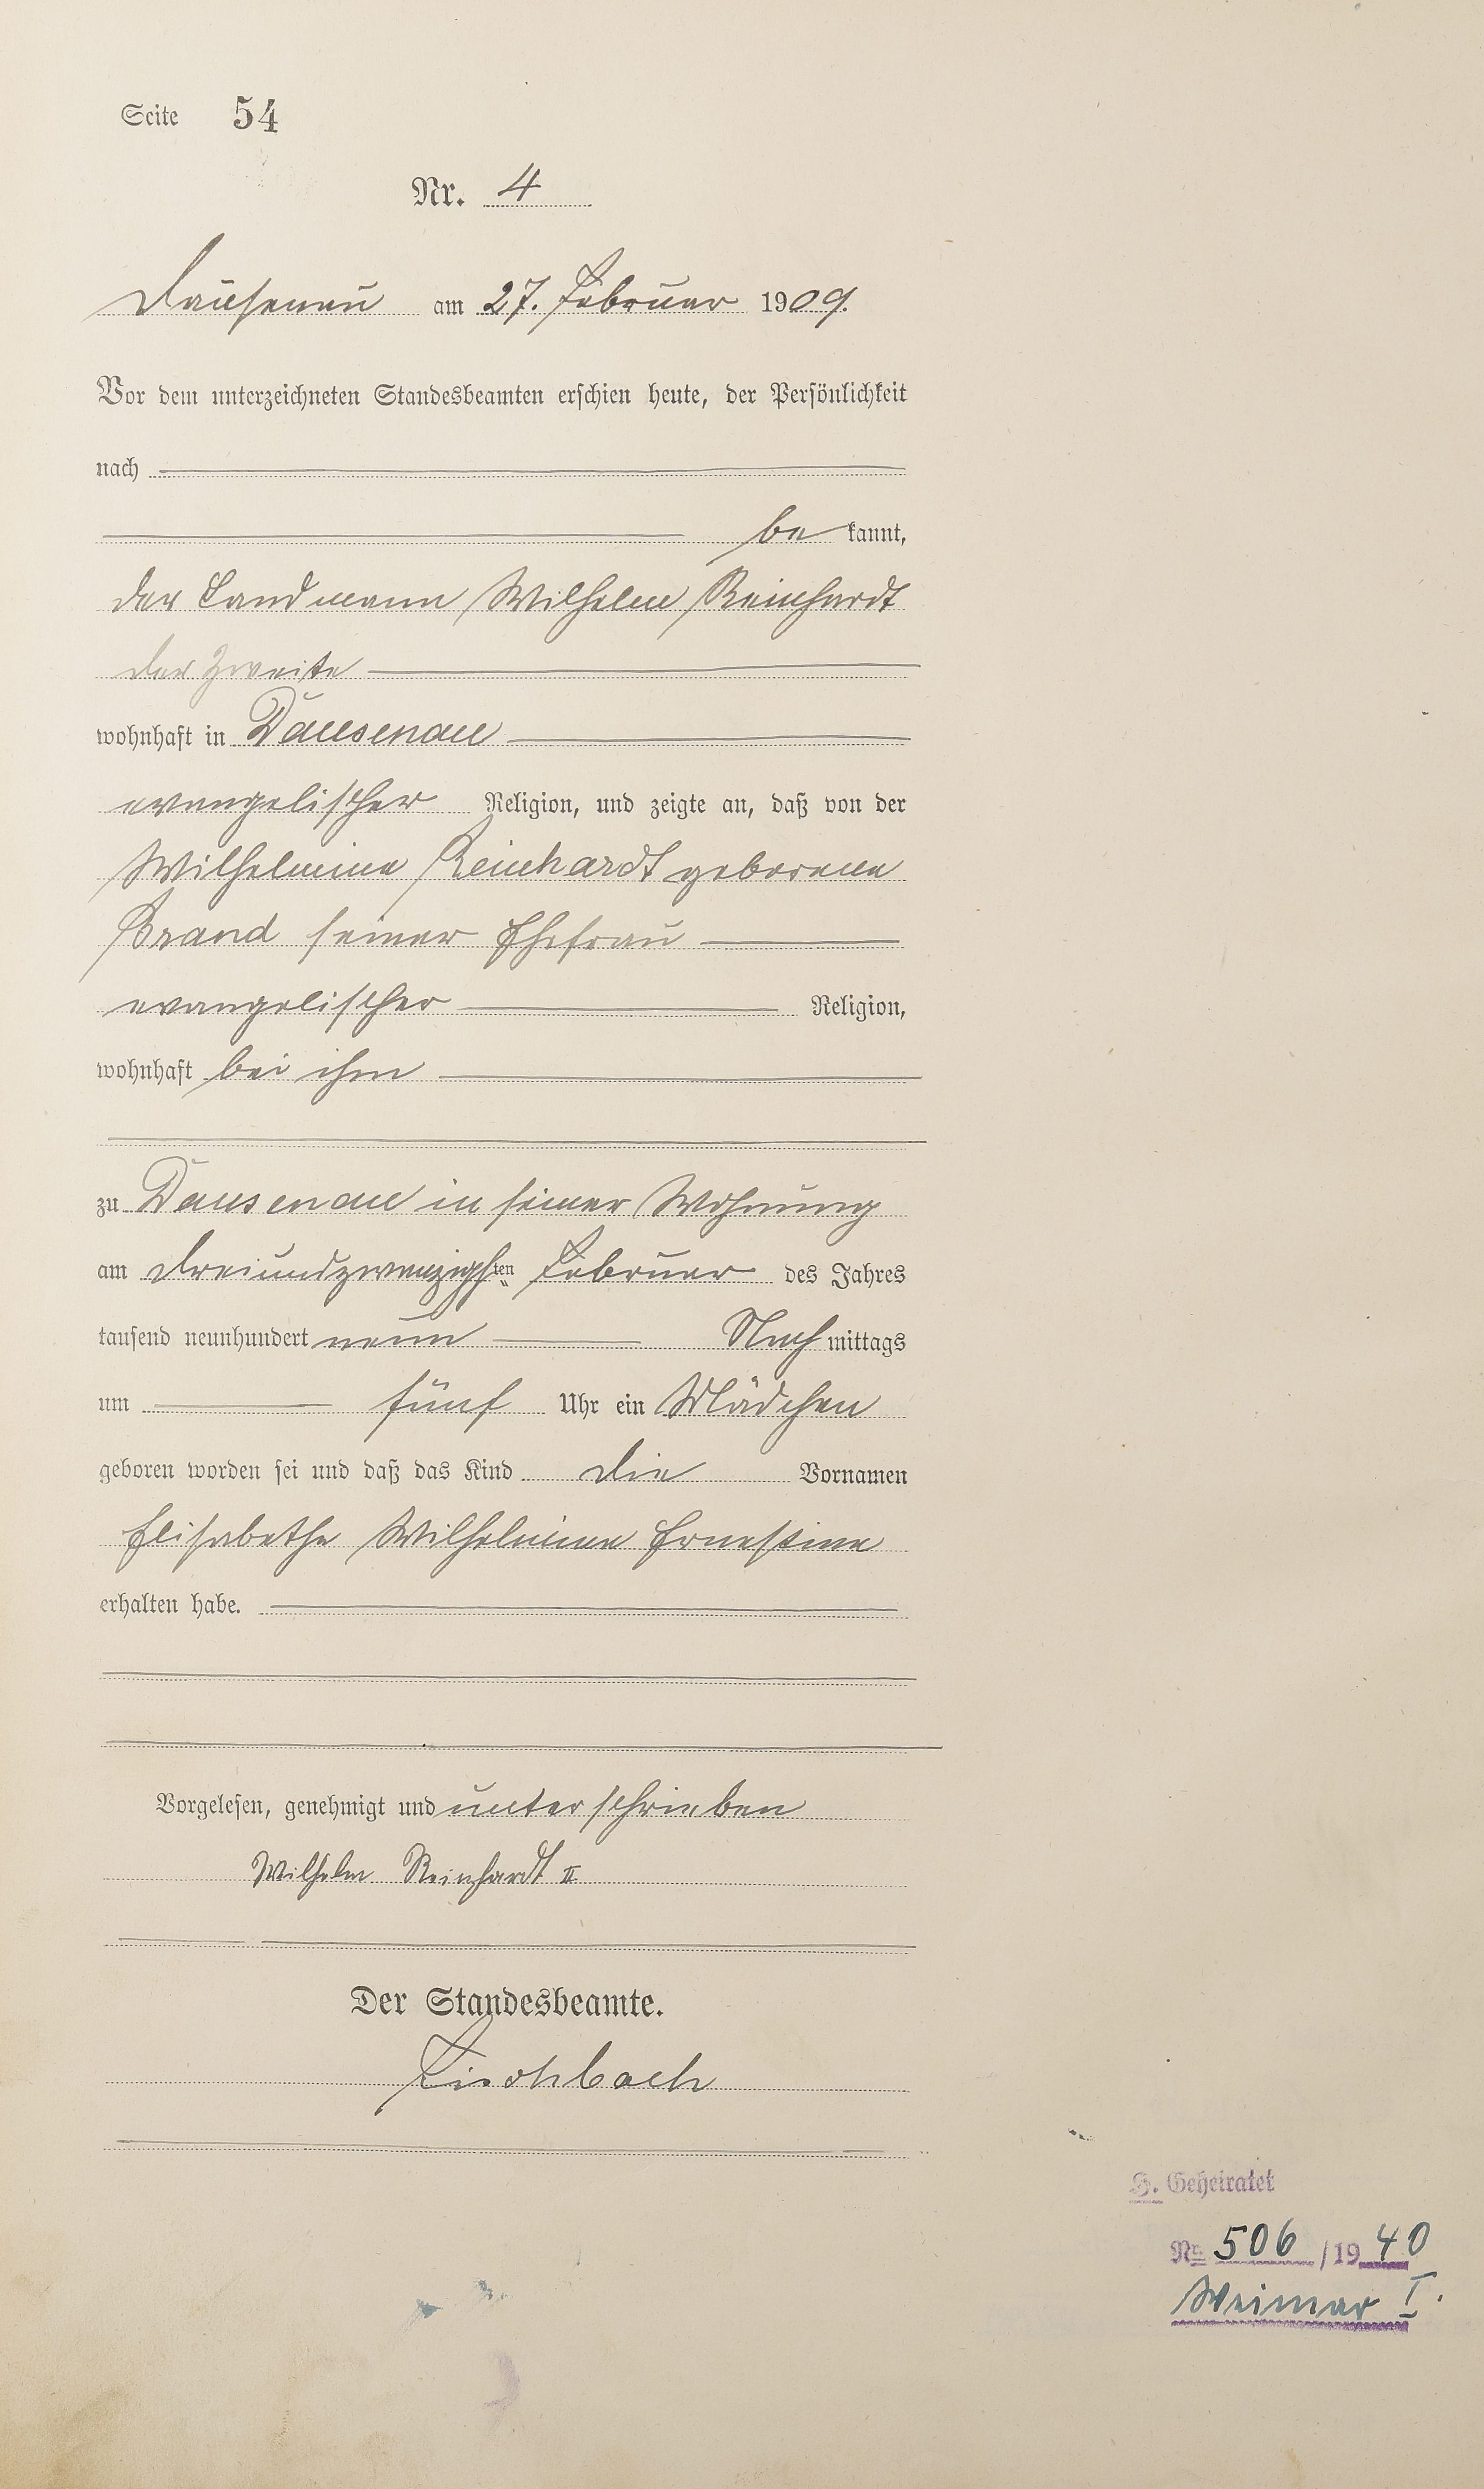 Seite 54
Nr. 4
Dausenau am 27. Februar 1909.
Vor dem unterzeichneten Standesbeamten erschien heute, der Persönlichkeit
nach
be kannt,
der Landmann Wilhelm Reinhardt
der Zweite
wohnhaft in Dausenau
evangelischer Religion, und zeigte an, daß von der
Wilhelmine Reinhardt geborene
Brand seiner Ehefrau
evangelischer Religion,
wohnhaft bei ihm
zu Dausenau in seiner Wohnung
am dreiundzwanzigsten Februar des Jahres
tausend neunhundert neun Nach mittags
um fünf Uhr ein Mädchen
geboren worden sei und daß das Kind die Vornamen
Elisabethe Wilhelmine Ernestine
erhalten habe.
Vorgelesen, genehmigt und unterschrieben
Wilhelm Reinhardt II
Der Standesbeamte.
Fischbach
H. Geheiratet
Nr. 506 / 1940
Weimar I.